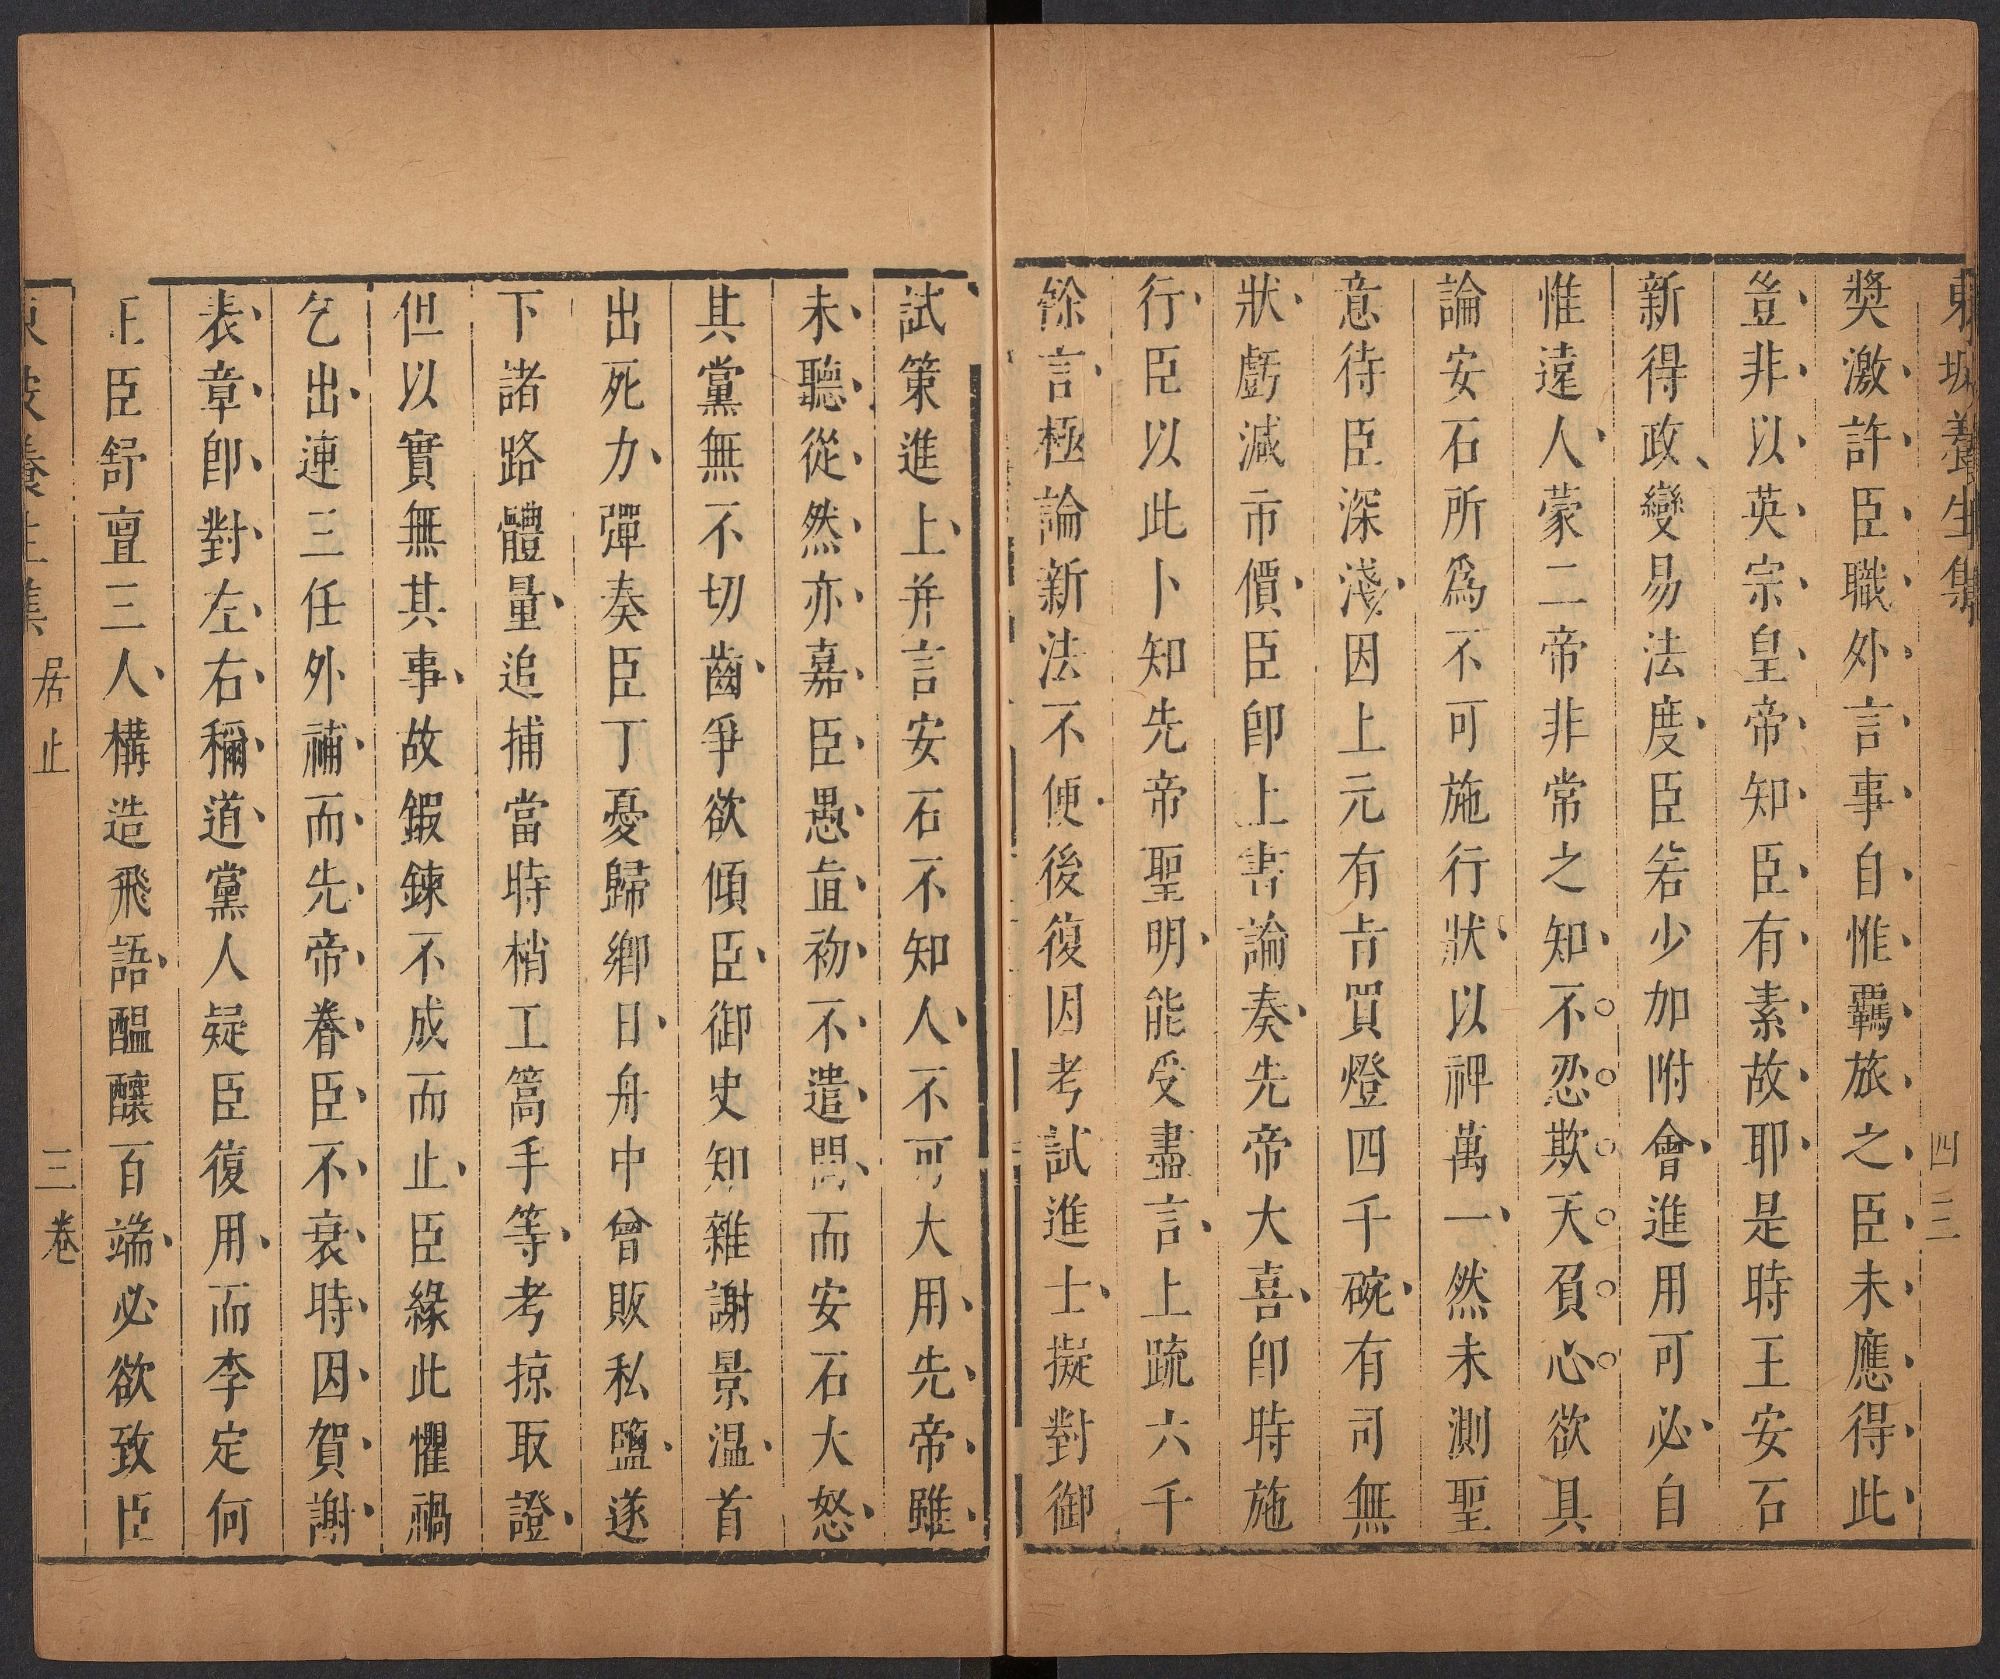 東坡養生集
四三
奬激許臣職外言事自惟羈旅之臣未應得此
豈非以英宗皇帝知臣有素故耶是時王安石
新得政變易法度臣若少加附會進用可必自
惟遠人蒙二帝非常之知不忍欺天負心欲具
論安石所為不可施行狀以裨萬一然未測聖
意待臣深淺因上元有旨買燈四千碗有司無
狀虧減市價臣即上書論奏先帝大喜即時施
行臣以此卜知先帝聖明能受盡言上疏六千
餘言極論新法不便後復因考試進士擬對御
試策進上并言安石不知人不可大用先帝雖
未聽從然亦嘉臣愚直初不遣問而安石大怒
其黨無不切齒爭欲傾臣御史知雜謝景温首
出死力彈奏臣丁憂歸鄉日舟中曾販私鹽遂
下諸路體量追捕當時梢工篙手等考掠取證
但以實無其事故鍜鍊不成而止臣緣此懼禍
乞出連三任外補而先帝眷臣不衰時因賀謝
表章即對左右稱道黨人疑臣復用而李定何
正臣舒亶三人構造飛語醖釀百端必欲致臣
東坡養生集
居止
三卷